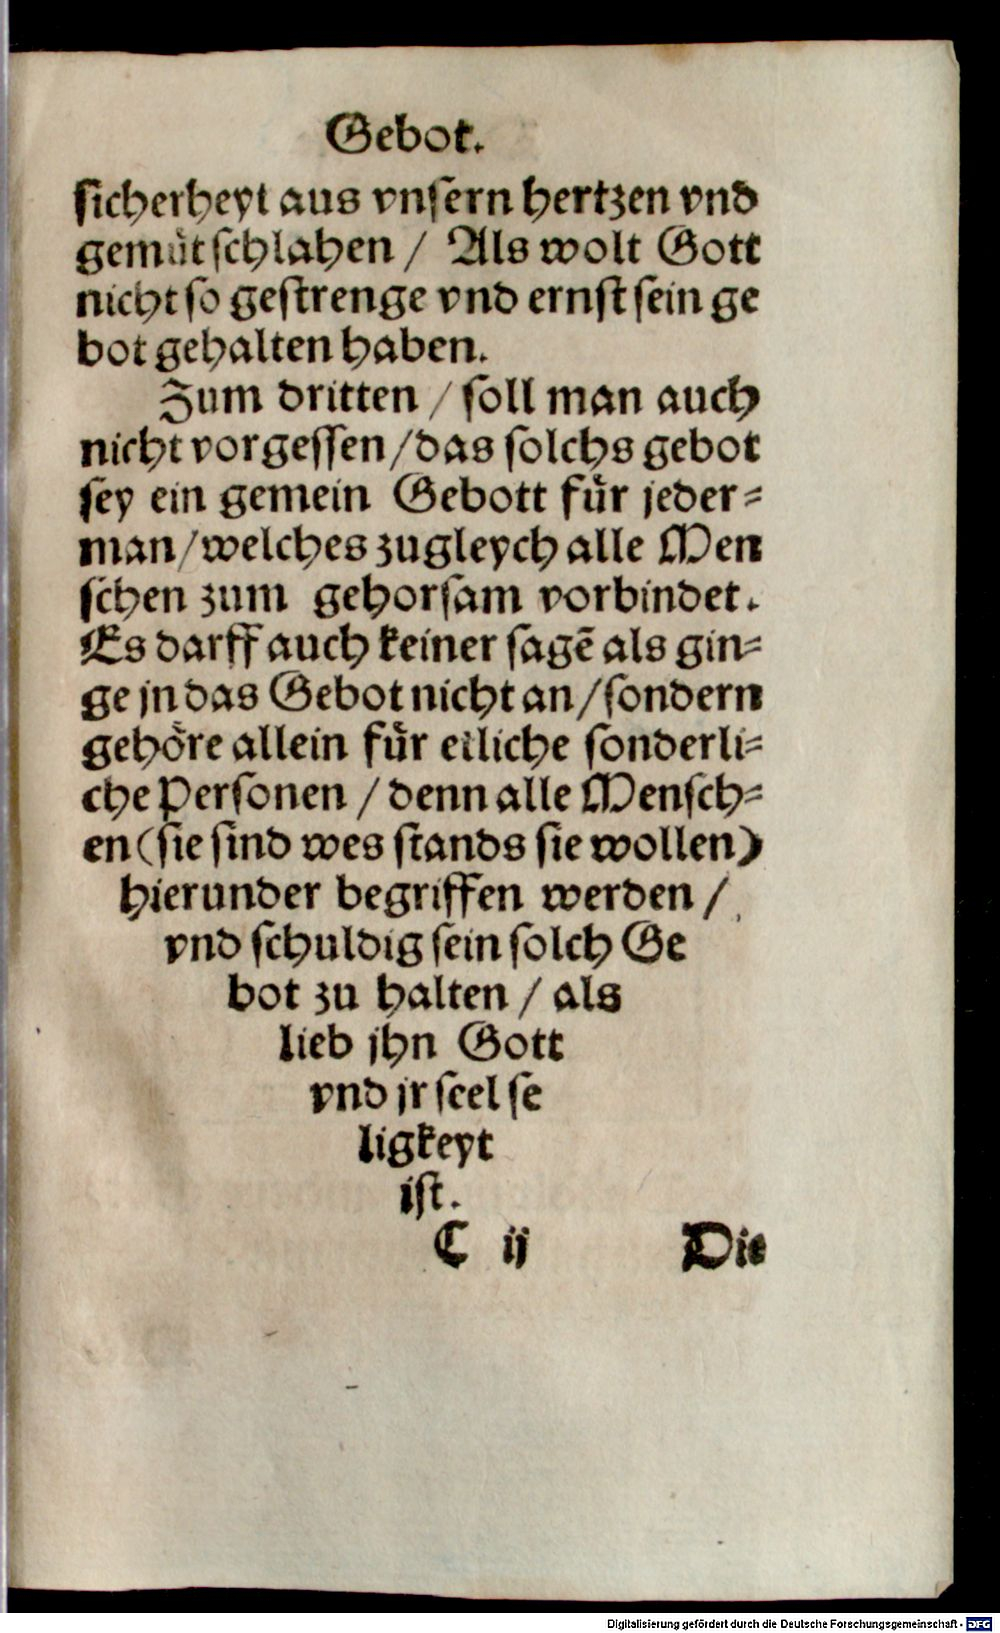 Gebot.
sicherheyt aus vnsern hertzen vnd
gemüt schlahen / Als wolt Gott
nicht so gestrenge vnd ernst sein ge
bot gehalten haben.
Zum dritten / soll man auch
nicht vorgessen / das solchs gebot
sey ein gemein Gebott für jeder=
man / welches zugleych alle Men
schen zum gehorsam vorbindet.
Es darff auch keiner sagē als gin=
ge jn das Gebot nicht an / sondern
gehöre allein für etliche sonderli=
che Personen / denn alle Mensch=
en (sie sind wes stands sie wollen)
hierunder begriffen werden /
vnd schuldig sein solch Ge
bot zu halten / als
lieb jhn Gott
vnd jr seel se
ligkeyt
ist.
C ij Die
Digitalisierung gefördert durch die Deutsche Forschungsgemeinschaft - DFG